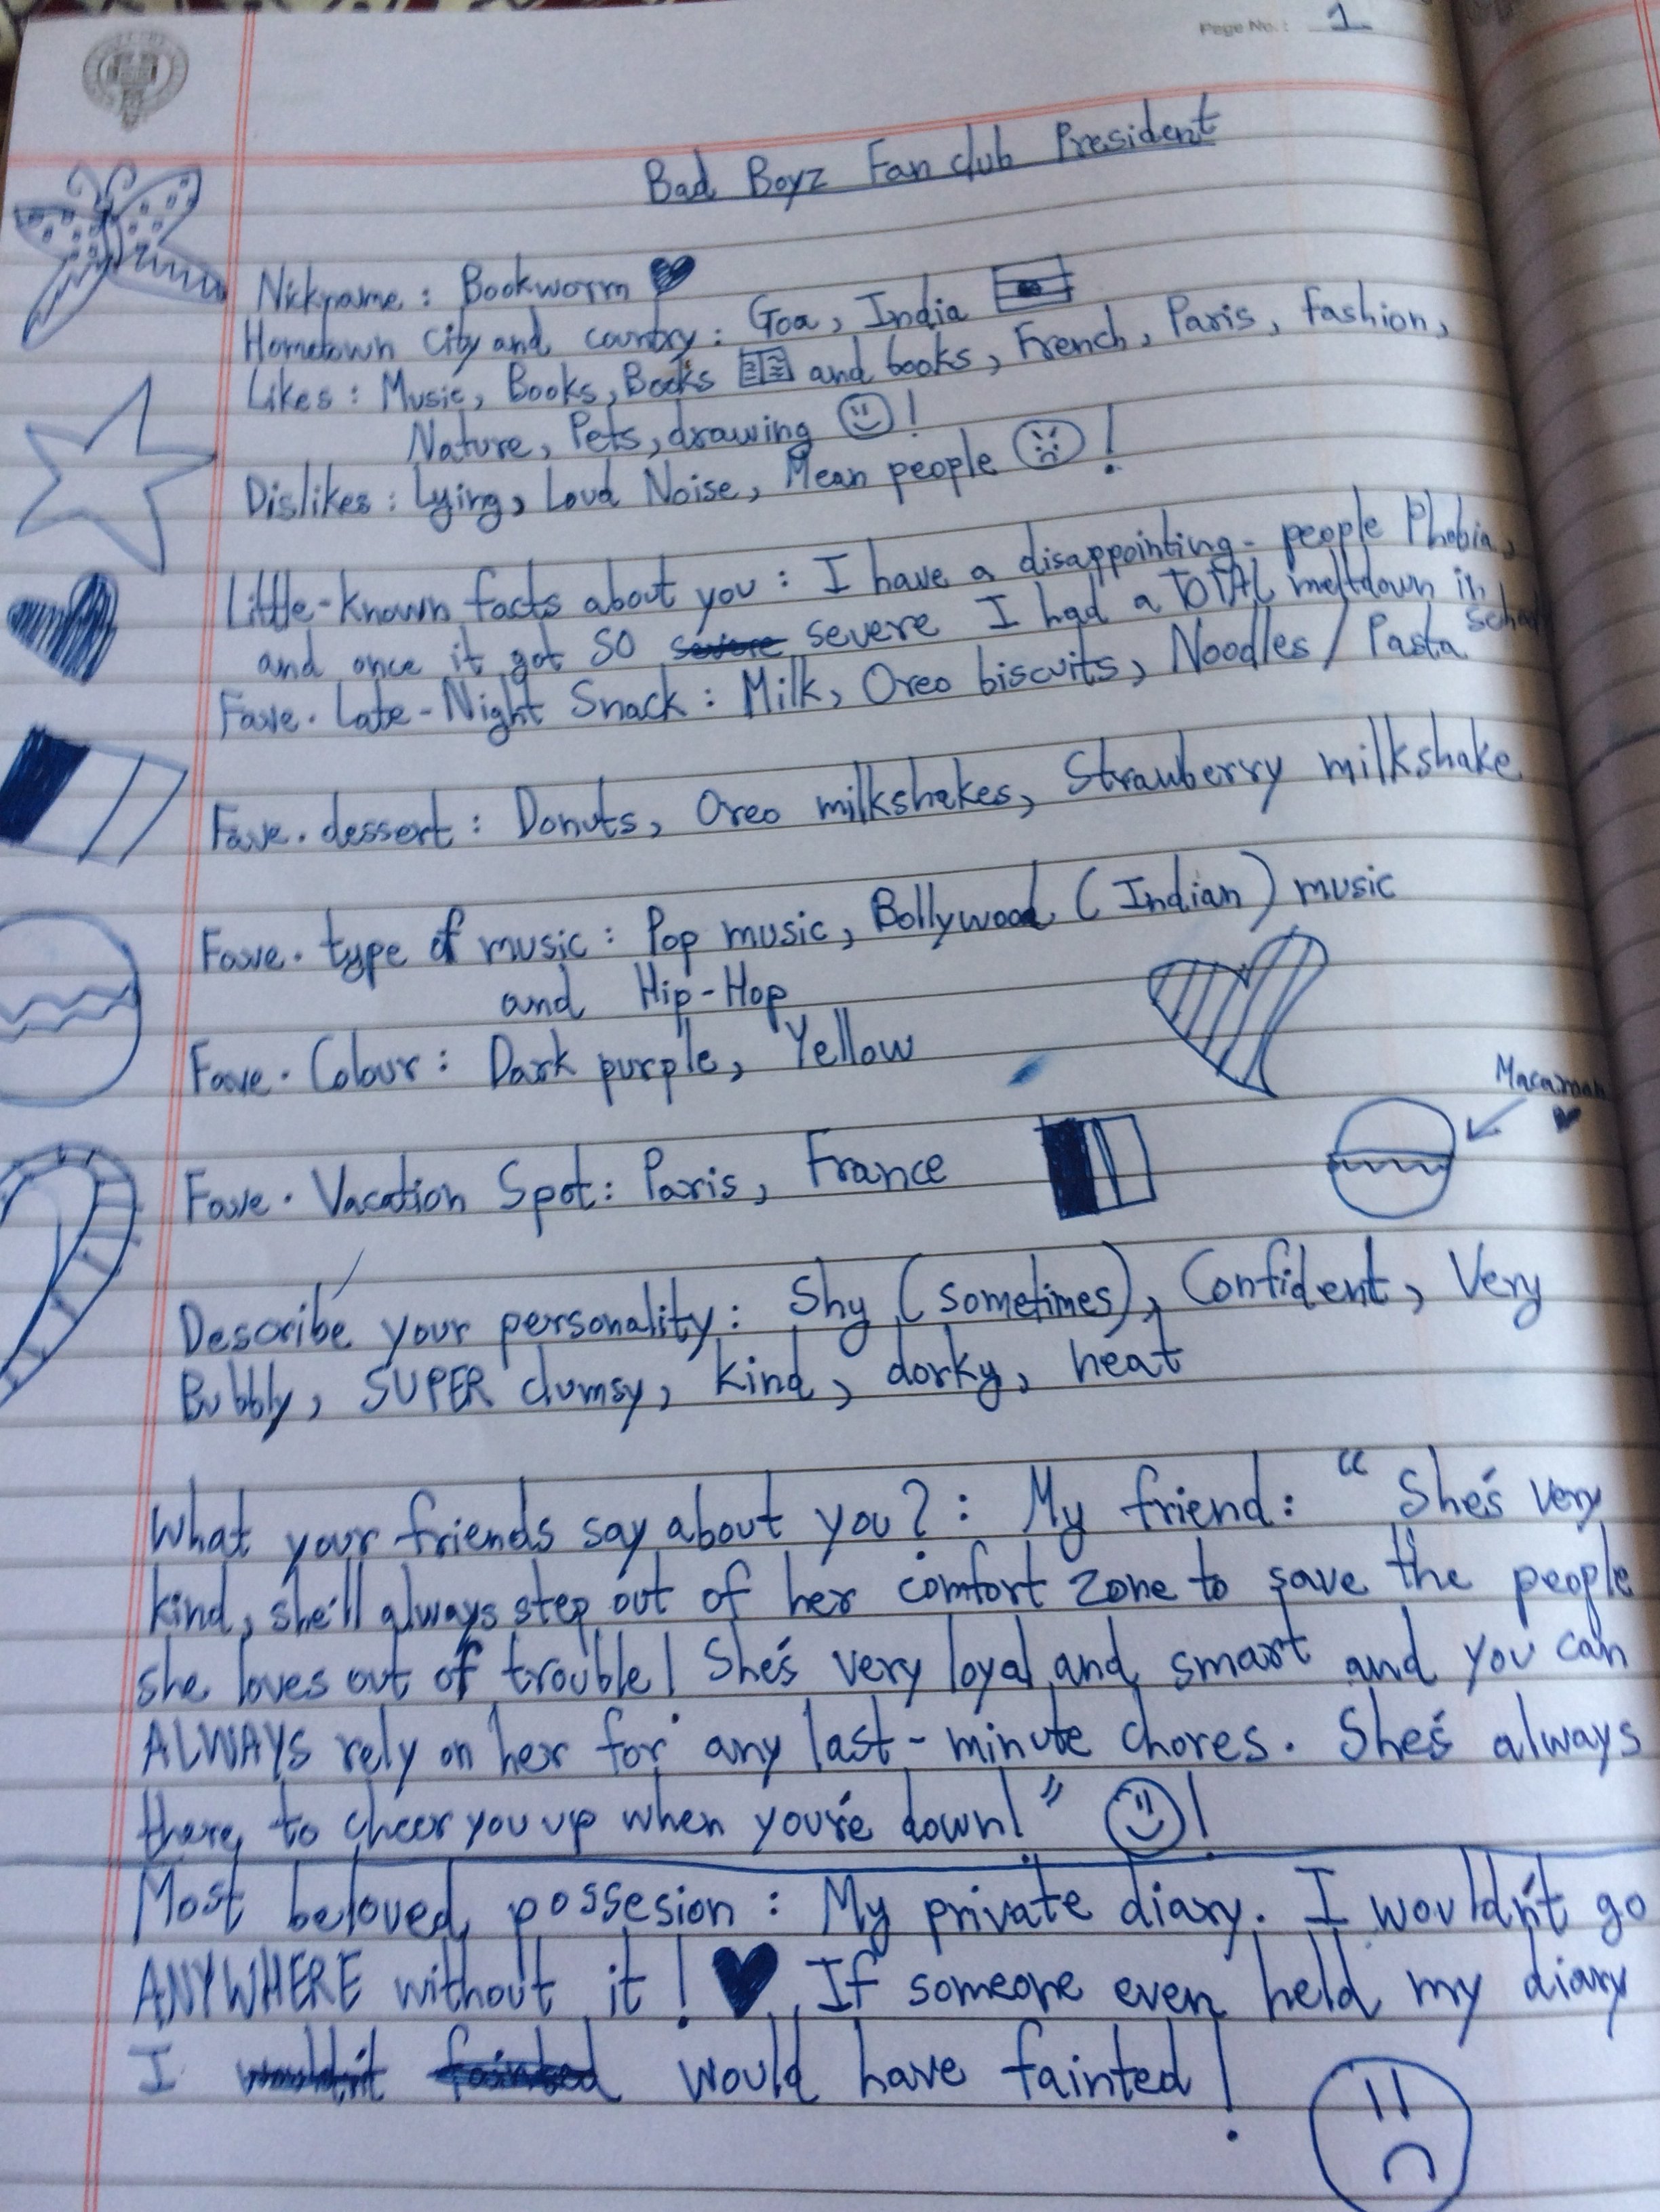 Page No.: 1
Bad Boyz Fan club President
Nickname : Bookworm
Hometown City and country : Goa, India
Likes : Music, Books, Books and books, French, Paris, fashion,
Nature, Pets, drawing !
Dislikes : Lying, Loud Noise, Mean people !
Little-known facts about you : I have a disappointing-people Phobia,
and once it got SO severe severe I had a TOTAL meltdown in school
Fave. Late-Night Snack : Milk, Oreo biscuits, Noodles / Pasta
Fave. dessert : Donuts, Oreo milkshakes, Strawberry milkshake
Fave. type of music : Pop music, Bollywood (Indian) music
and Hip-Hop
Fave. Colour : Dark purple, Yellow
Macaroon
Fave. Vacation Spot : Paris, France
Describe your personality : Shy (sometimes), Confident, Very
Bubbly, SUPER clumsy, kind, dorky, neat
What your friends say about you? : My friend : "She's very
kind, she'll always step out of her comfort zone to save the people
she loves out of trouble! She's very loyal and smart and you can
ALWAYS rely on her for any last-minute chores. She's always
there to cheer you up when you're down!" !
Most beloved possesion : My private diary. I wouldn't go
ANYWHERE without it! If someone even held my diary
I wouldn't fainted would have fainted!